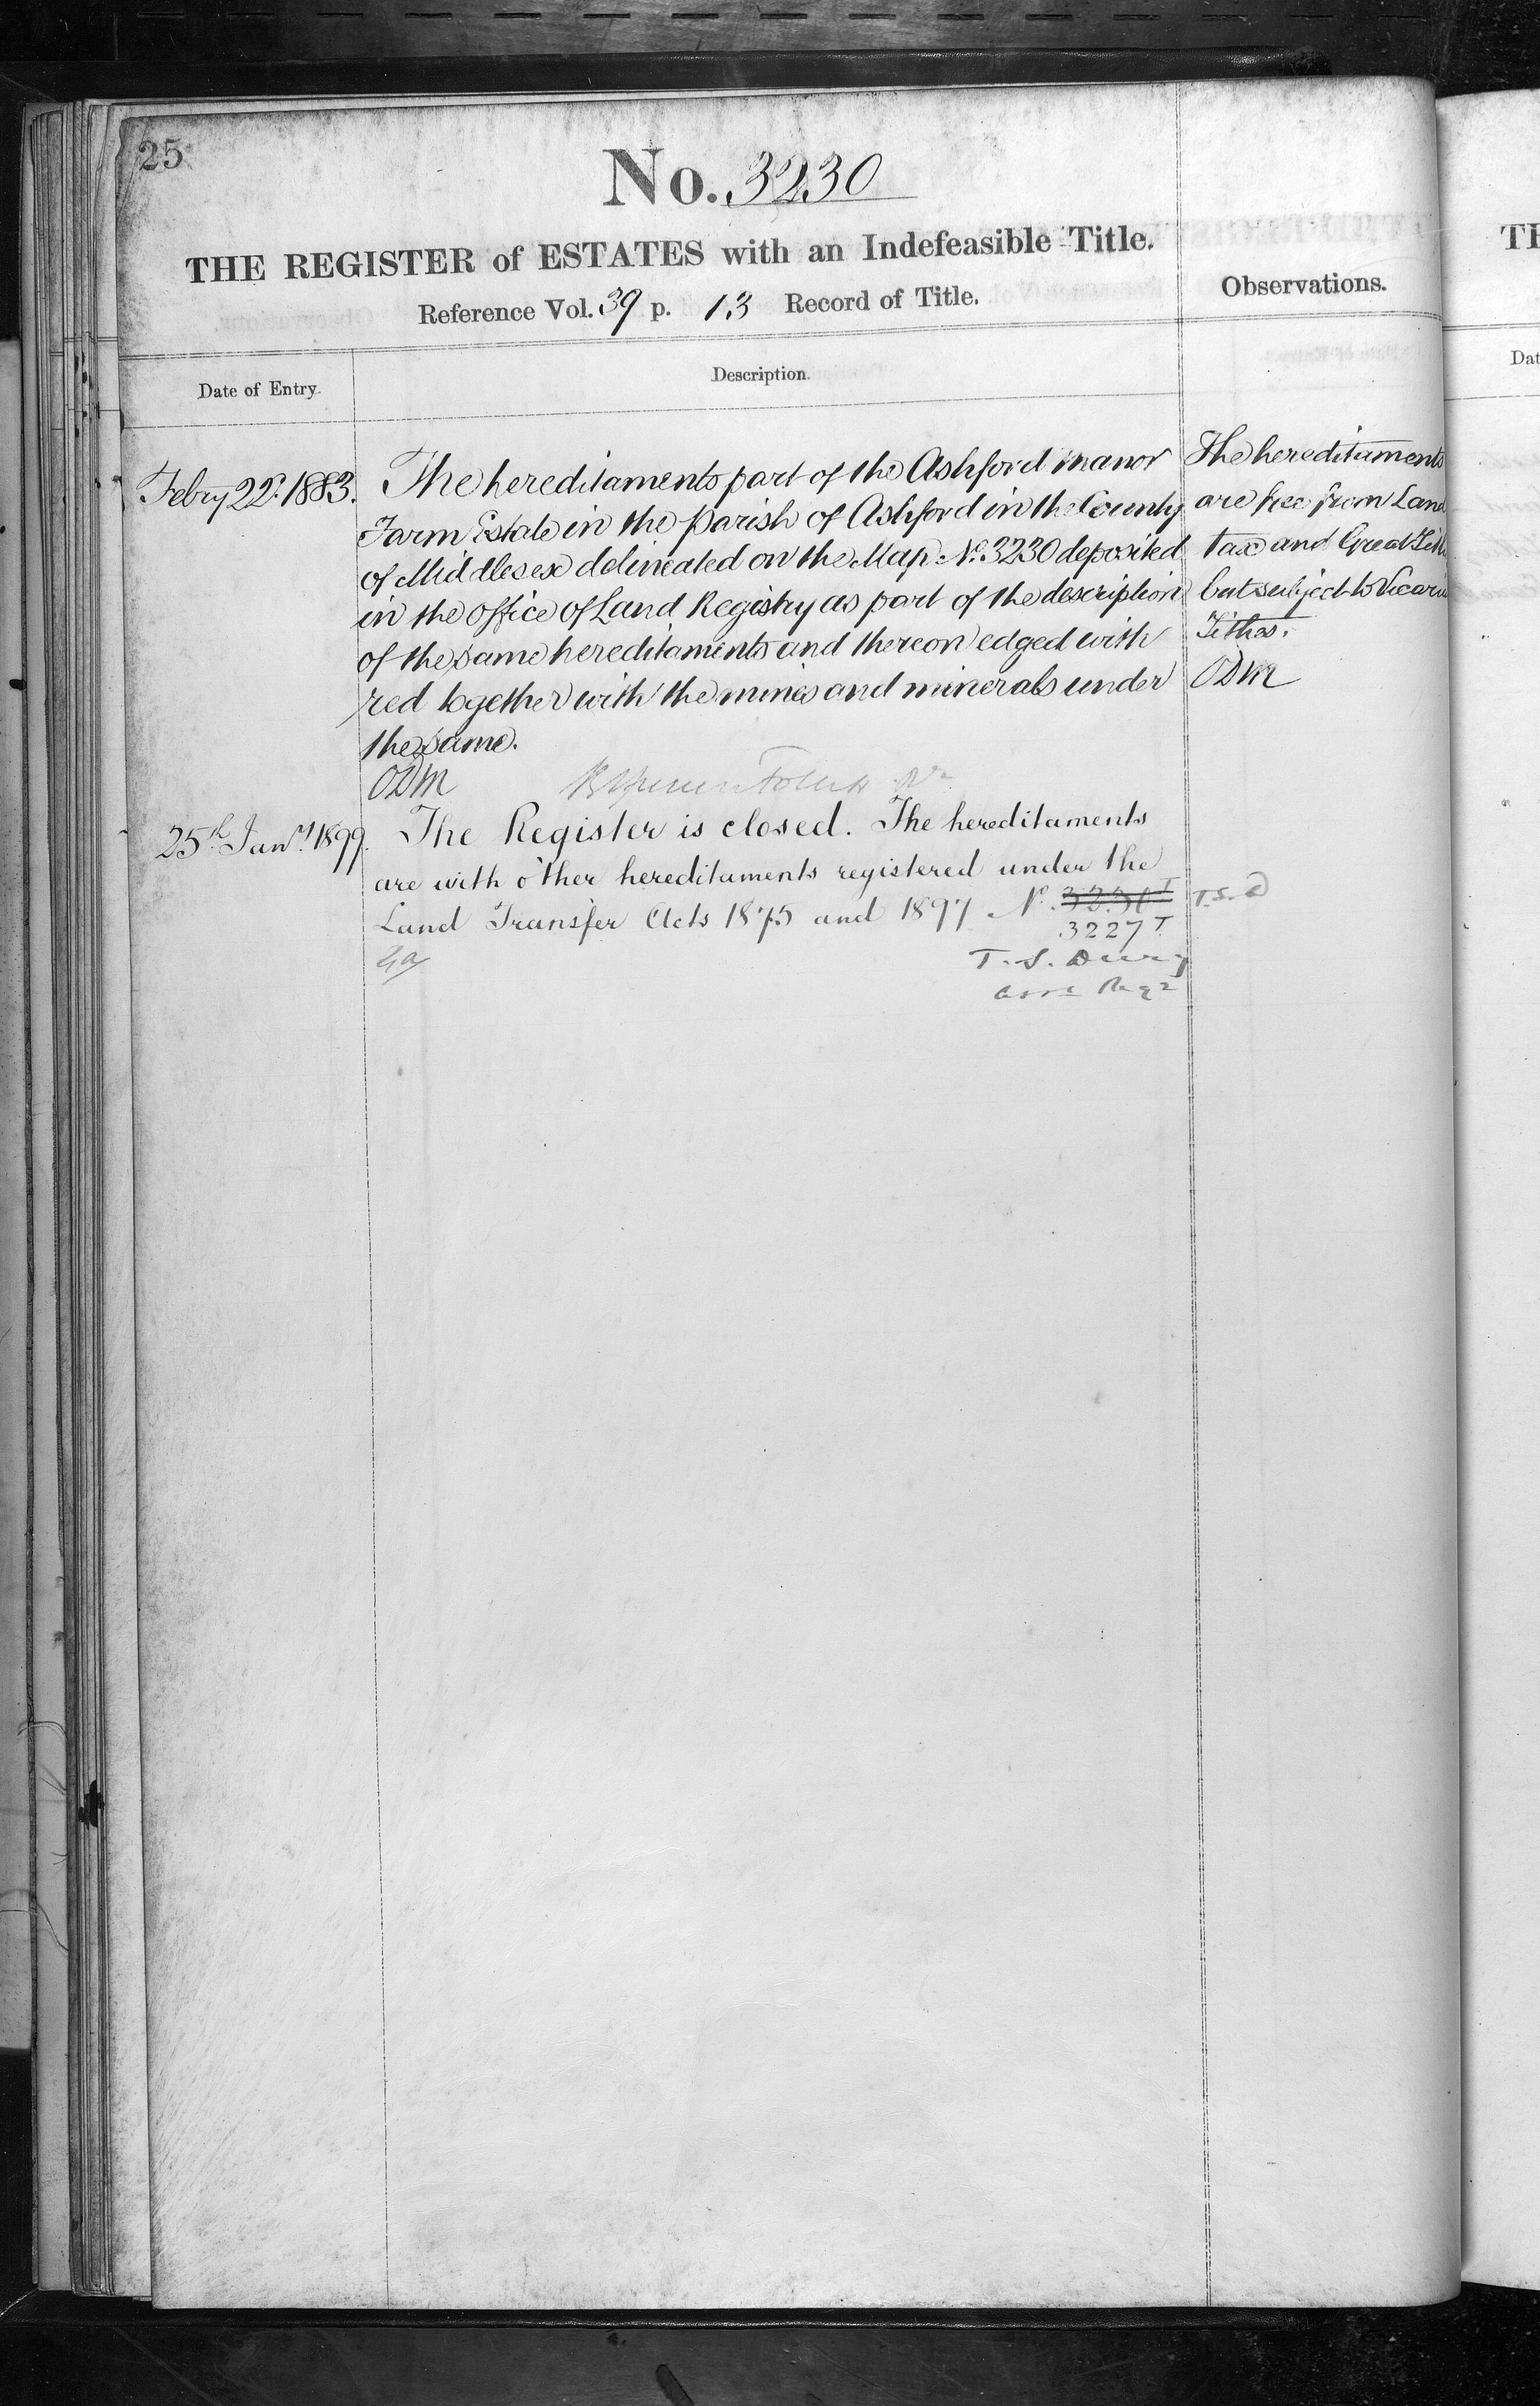 25
No. 3230
THE REGISTER of ESTATES with an Indefeasible Title.
Reference Vol. 39 p. 13 Record of Title.
Observations.
Date of Entry.
Description.
Febry 22d. 1883.
The hereditaments part of the Ashford Manor
Farm Estate in the parish of Ashford in the County
of Middlesex delineated on the Map No. 3230 deposited
in the office of Land Registry as part of the description
of the same hereditaments and thereon edged with
red together with the mines and minerals under
the same.
ODM
The hereditaments
are free from Land
tax and Great
but subject to
Tithes.
ODM
25th Jany. 1899.
The Register is closed. The hereditaments
are with other hereditaments registered under the
Land Transfer Acts 1875 and 1897 No. 3230 T
3227 T.
T.S.D
T. S.
Asst Regr
TH
Dat